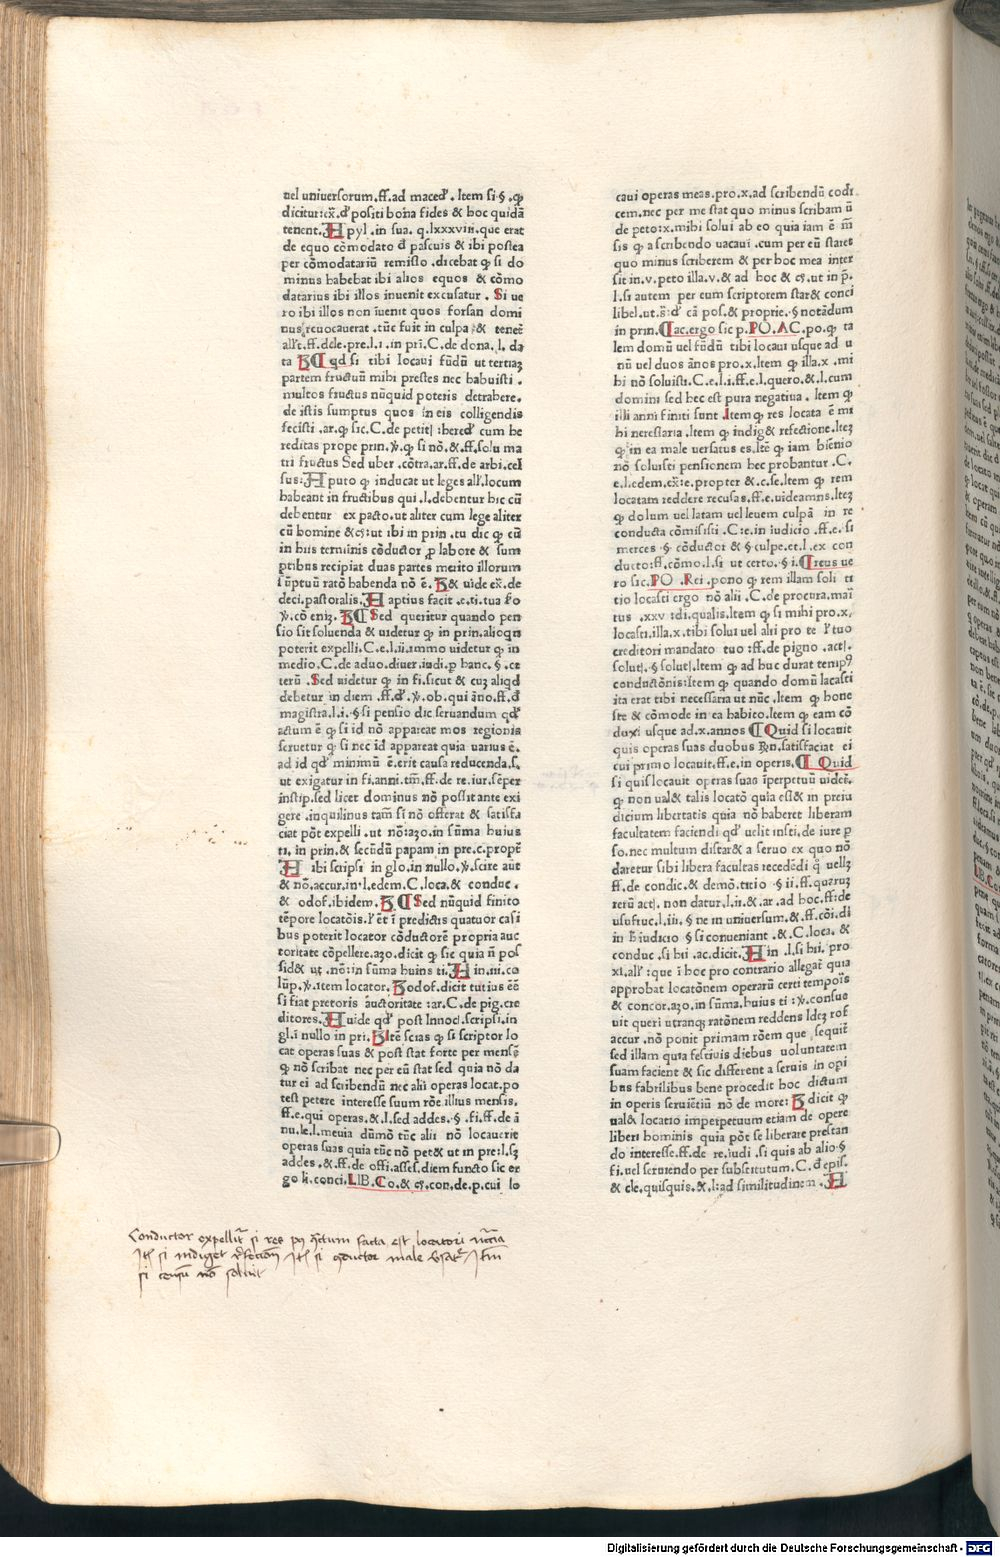 uel uniuersorum.ff.ad maced'. Item si.§.ꝙ
dicitur:ex̄.d' positi bona fides & hoc quidā
tenent. A pyl.in sua.q.lxxxviii.que erat
de equo cōmodato đ pascuis & ibi postea
per cōmodatariū remisso.dicebat ꝙ si do
minus habebat ibi alios equos & cōmo
datarius ibi illos inuenit excusatur. Si ue
ro ibi illos non īuenit quos forsan domi
nus reuocauerat.tūc fuit in culpa & tenet̄
all't.ff.dele.pre.l.i.in pri.C.de dona.l.da
ta B ¶ qd si tibi locaui fūdū ut tertiaꝫ
partem fructuū mihi prestes nec habuisti.
multos fructus nūquid poteris detrahere.
de istis sumptus quos in eis colligendis
fecisti.ar.ꝙ sic.C.de petit.hered' cum he
reditas prope prin.℣.ꝙ si nō.&.ff.solu ma
tri fructus Sed uber.cōtra.ar.ff.de arbi.cel
sus: A puto ꝙ inducat ut leges all'.locum
habeant in fructibus qui.l.debentur hic cū
debentur ex pacto.ut aliter cum lege aliter
cū homine &c:ut ibi in prin.tu dic ꝙ cū
in hiis terminis cōductor ꝓ labore & sum
ptibus recipiat duas partes merito illorum
sūptuū ratō habenda nō ē. B & uide ex̄.de
deci.pastoralis. A aptius facit.e.ti.tua ꝟo
℣.cō eniꝫ. B ¶ Sed queritur quando pen
sio sit soluenda & uidetur ꝙ in prin.alioqn
poterit expelli.C.e.l.ii.immo uidetur ꝙ in
medio.C.de aduo.diuer.iudi.ꝑ hanc.§.ce
terū.Sed uidetur ꝙ in fi.sicut & cuꝫ aliqd
debetur in diem.ff.d'.℣.ob.qui āno.ff.đ
magistra.l.i.§ si pensio dic seruandum qd'
actum ē ꝙ si id nō appareat mos regionis
seruetur ꝙ si nec id appareat quia uarius ē.
ad id qd' minimū ē.erit causa reducenda.s.
ut exigatur in fi.anni.tm̄.ff.de re.iur.sēper
instip.sed licet dominus nō possit ante exi
gere.inquilinus tam̄ si nō offerat & satisfa
ciat pōt expelli.ut nō:azo.in sūma huius
ti.in prin.& secūdū papam in pre.c.propt̄
A ibi scripsi in glo.in nullo.℣.scire aūt
& nō.accur.in.l.edem.C.loca.& conduc.
& odof.ibidem. B ¶ Sed nūquid finito
tēpore locatōis.ꝟ ēt ī predictis quatuor casi
bus poterit locator cōductorē propria auc
toritate cōpellere.azo.dicit ꝙ sic quia n̄ pos
sid& ut.nō:in sūma huius ti. A in.iii.co
lūp.℣.item locator. B odof.dicit tutius eē
si fiat pretoris auctoritate:ar.C.de pig.cre
ditores. A uide qd' post Innoc.scripsi.in
gl.i nullo in pri. B Itē scias ꝙ si scriptor lo
cat operas suas & post stat forte per mensē
ꝙ nō scribat nec per eū stat sed quia nō da
tur ei ad scribendū nec alii operas locat.po
test petere interesse suum rōe illius mensis.
ff.e.qui operas.&.l.sed addes.§.fi.ff.de ā
nu.le.l.meuia dūmō tūc alii nō locauerit
operas suas quia tūc nō pet& ut in pre:l.sꝫ
addes.& ff.de offi.asses.diem functo sic er
go li.conci.LIB.Co.& c.con.de.p.cui lo
caui operas meas.pro.x.ad scribendū codi
cem.nec per me stat quo minus scribam ū
de peto:x.mihi solui ab eo quia iam ē m̄
sis ꝙ a scribendo uacaui.cum per eū staret
quo minus scriberem & per hoc mea inter
sit in.v.peto illa.v.& ad hoc & c.ut in p̄.
l.si autem per eum scriptorem star& conci
libel.ut.s̄:d' cā pos.& proprie.§ notādum
in prin. ¶ ac.ergo sic p.PO.AC.po.ꝙ ta
lem domū uel fūdū tibi locaui usque ad u
nū uel duos ānos pro.x.Item ꝙ illa.x.mi
hi nō soluisti.C.e.l.i.ff.e.l.quero.&.l.cum
domini sed hec est pura negatiua. Item ꝙ
illi anni finiti sunt.Item ꝙ res locata ē mi
hi necessaria.Item ꝙ indig& refectione.Iteꝫ
ꝙ in ea male uersatus es.Itē ꝙ iam biēnio
nō soluisti pensionem hec probantur.C.
e.l.edem.ex̄:e.propter & c.se.Item ꝙ rem
locatam reddere recusas.ff.e.uideamus.Iteꝫ
ꝙ dolum uel latam uel leuem culpā in re
conducta cōmisisti.C:e.in iudicio.ff.e.si
merces.§.cōductor & §.culpe.et.l.ex con
ducto:ff.cōmo.l.si ut certo.§ i. ¶ reus ue
ro sic.PO.Rei.pono ꝙ rem illam soli ti
tio locasti ergo nō alii.C.de procura.mai
tus.xxv:di.qualis.Item ꝙ si mihi pro.x.
locasti.illa.x.tibi solui uel alii pro te ꝟ tuo
creditori mandato tuo:ff.de pigno.act.
solut.§ solut.Item ꝙ ad huc durat temp⁹
conductōnis:Item ꝙ quando domū locasti
ita erat tibi necessaria ut nūc.Item ꝙ hone
ste & cōmode in ea habito.Item ꝙ eam cō
duxi usque ad.x.annos ¶ Quid si locauit
quis operas suas duobus ℞n.satisfaciat ei
cui primo locauit.ff.e.in operis. ¶ Quid
si quis locauit operas suas īperpetuū uidet̄.
ꝙ non ual& talis locatō quia est& in preiu
dicium libertatis quia nō haberet liberam
facultatem faciendi qd' uelit insti.de iure p
so.nec multum distar& a seruo ex quo nō
daretur sibi libera facultas recedēdi qn̄ uellꝫ
ff.de condic.& demō.titio.§ ii.ff.quaruꝫ
rerū act.non datur.l.ii.& ar.ad hoc.ff:de
usufruc.l.iii.§ ne in uniuersum.&.ff.cōi.di
in ꝟ iudicio §.si conueniant.&.C.loca.&
conduc.si hii.ac.dicit. A in.l.si hii.pro
xi.all':que ī hoc pro contrario allegat̄ quia
approbat locatōnem operarū certi tempois
& concor.azo.in sūma.huius ti:℣.consue
uit queri utranqꝫ ratōnem reddens Ideꝫ rof
accur.nō ponit primam rōem que sequit̄
sed illam quia festiuis diebus uoluntatem
suam facient & sic different a seruis in opi
bus fabrilibus bene procedit hoc dictum
in operis seruiētiū nō de more: B dicit ꝙ
ual& locatio imperpetuum etiam de opere
liberi hominis quia pōt se liberare prestan
do interesse.ff.de re.iudi.si quis ab alio §
fi.uel seruiendo per substitutum.C.đ epis.
& cle.quisquis.&.l:ad similitudinem. A
Conductor expellit̄ si res post contractum facta est locatori necessaria
Item si indiget refectione Item si conductor male versatur Item
si censum non soluit
Digitalisierung gefördert durch die Deutsche Forschungsgemeinschaft - DFG